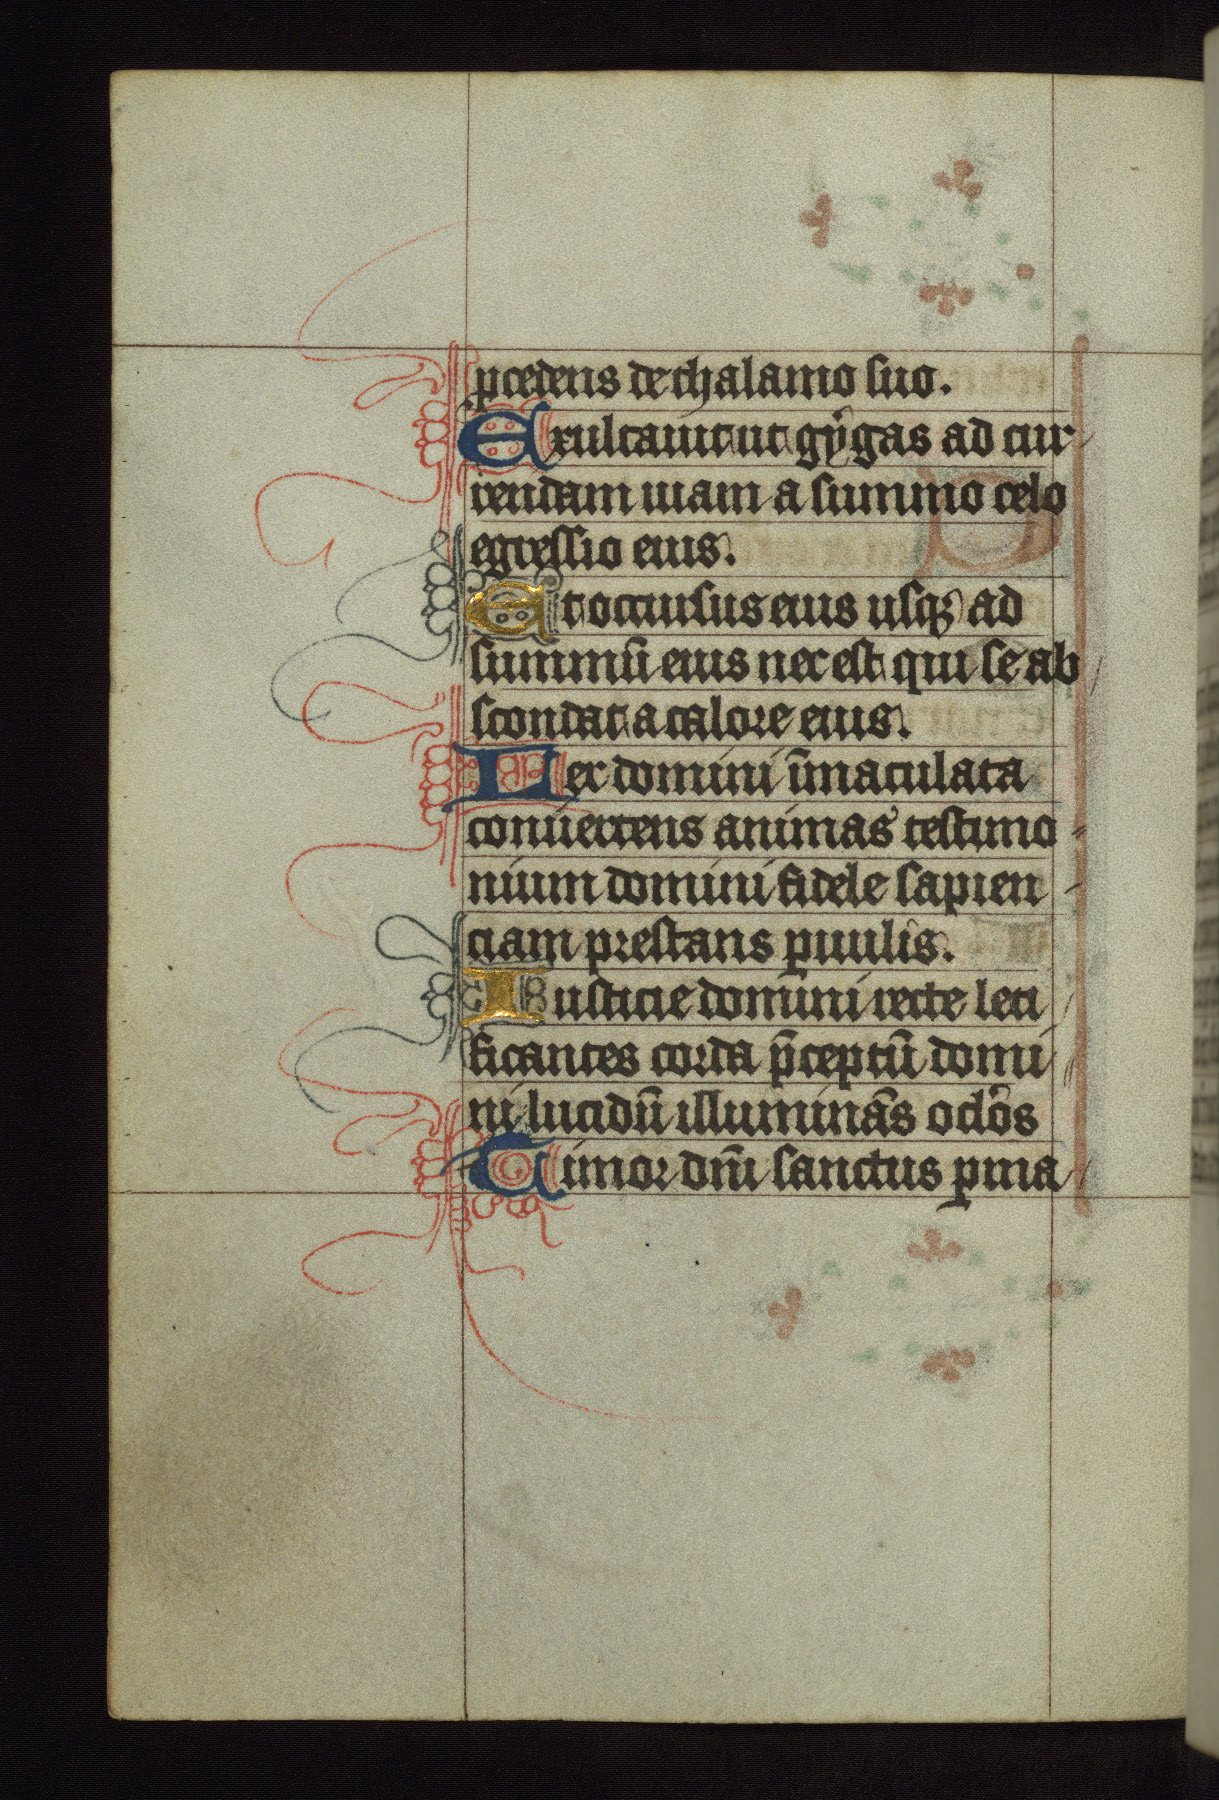 ꝓcedens de thalamo suo.
Exultauit ut gẏgas ad cur
rendam uiam a summo celo
egressio eius.
Et occursus eius usqꝫ ad
summū eius nec est qui se ab
scondat a calore eius.
Lex domini īmaculata
conuertens animas testimo
nium domini fidele sapien
ciam prestans ꝑuulis.
Iusticie domini recte leti
ficantes corda p̄ceptū domi
ni lucidū illuminās oclōs
Timor dn̄i sanctus ꝑma